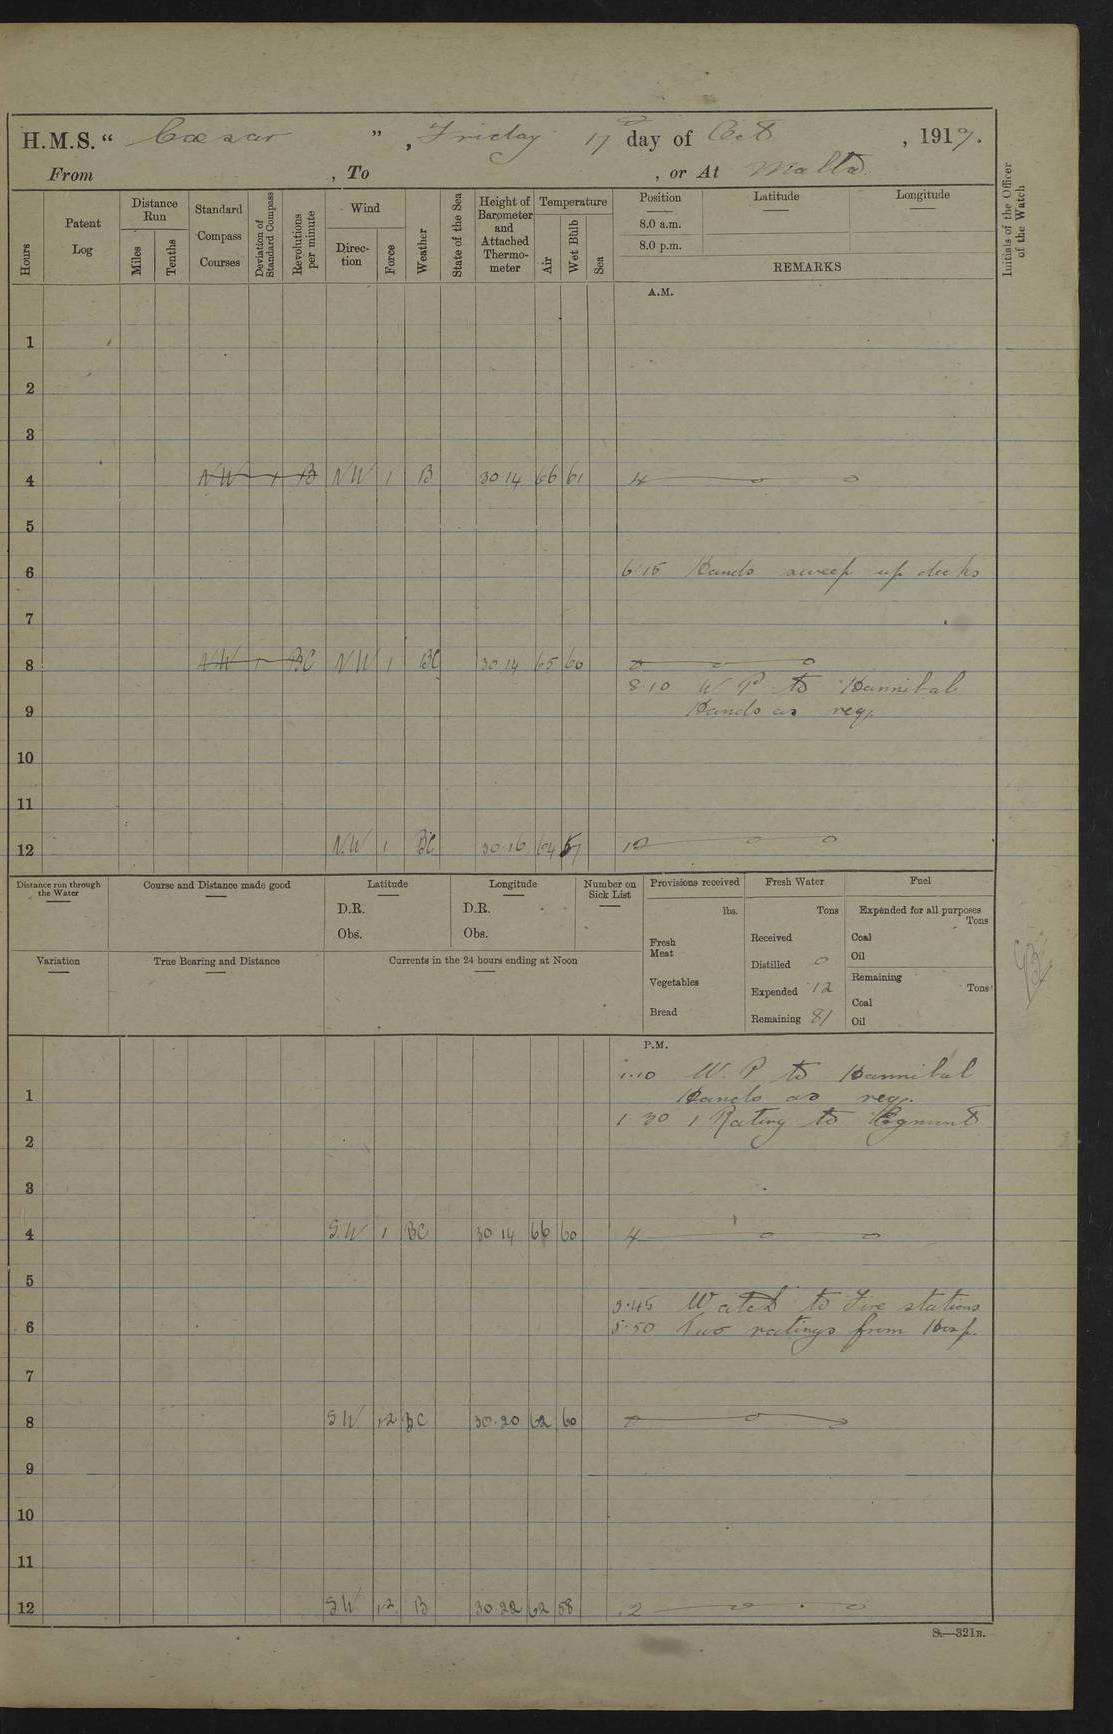 H.M.S. “ Cæsar ” , Friday 17th day of Oct , 1919.
From , To , or At Malta.
Hours
Patent Log
Distance Run
Miles
Tenths
Standard Compass Courses
Deviation of Standard Compass
Revolutions per minute
Wind
Direc-tion
Force
Weather
State of the Sea
Height of Barometer and Attached Thermo-meter
Temperature
Air
Wet Bulb
Sea
Position
8.0 a.m.
8.0 p.m.
Latitude
Longitude
REMARKS
Initials of the Officer of the Watch
A.M.
1
2
3
4 NW 1 B NW 1 B 30 14 66 61 4
5
6 6.15 Hands sweep up decks
7
8 NW 1 BC NW 1 BC 30 14 65 60
8.10 W P to Hannibal
9 Hands as req.
10
11
12 N.W 1 BC 30.16 64 57 12
Distance run through the Water
Course and Distance made good
Latitude
D.R.
Obs.
Longitude
D.R.
Obs.
Number on Sick List
Provisions received
lbs.
Fresh Meat
Vegetables
Bread
Fresh Water
Tons
Received
Distilled 0
Expended 12
Remaining 81
Fuel
Expended for all purposes
Tons
Coal
Oil
Remaining
Tons
Coal
Oil
Variation
True Bearing and Distance
Currents in the 24 hours ending at Noon
P.M.
1.10 W. P to Hannibal
1 Hands as req.
1.30 1 Rating to Egmont
2
3
4 S.W 1 BC 30.14 66 60 4
5
5.45 Watch to Fire stations
6 5.50 Two ratings from Hosp.
7
8 SW 1-2 BC 30.20 62 60
9
10
11
12 SW 1-2 B 30.22 62 58 12
S.—321B.